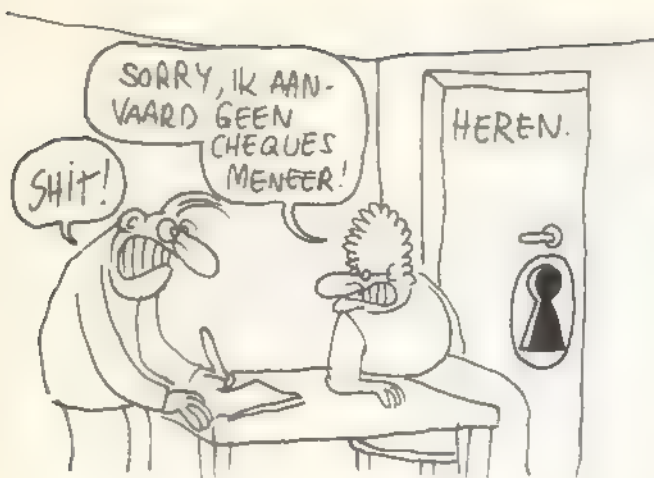 SHIT!
SORRY, IK AAN-
VAARD GEEN
CHEQUES
MENEER!
HEREN.